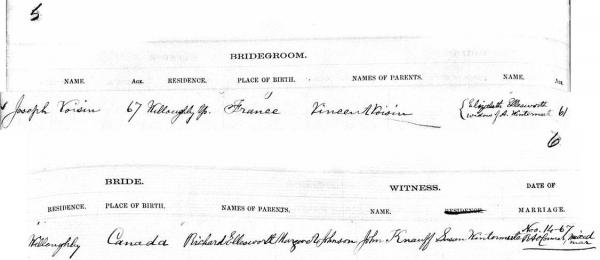 5
BRIDEGROOM.
NAME. AGE. RESIDENCE. PLACE OF BIRTH. NAMES OF PARENTS. NAME. AGE
Joseph Voisin 67 Willoughby Tp. France Vincent Voisin Elizabeth Ellesworth 61
widow of A. Wintermute
6
BRIDE. WITNESS. DATE OF
RESIDENCE. PLACE OF BIRTH. NAMES OF PARENTS. NAME. RESIDENCE. MARRIAGE.
Willoughby Canada Richard Ellesworth Johnson John Knauff Susan Wintermute Nov. 14-67
mixed
mar